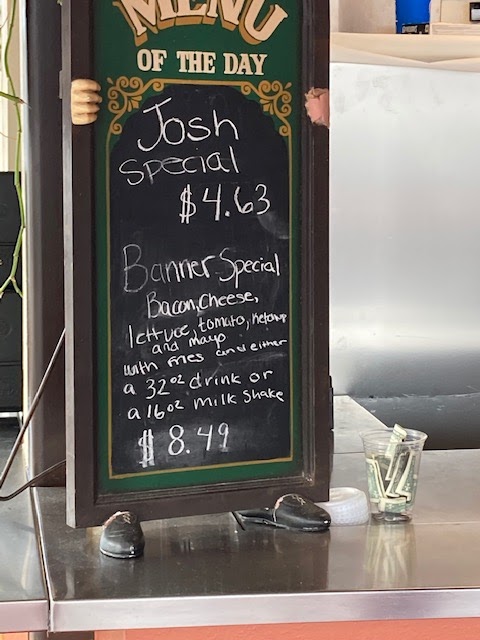 MENU
OF THE DAY
Josh
Special
$4.63
Banner Special
Bacon, Cheese,
lettuce, tomato, Ketchup
and mayo
with fries and either
a 32oz drink or
a 16oz milk Shake
$8.49